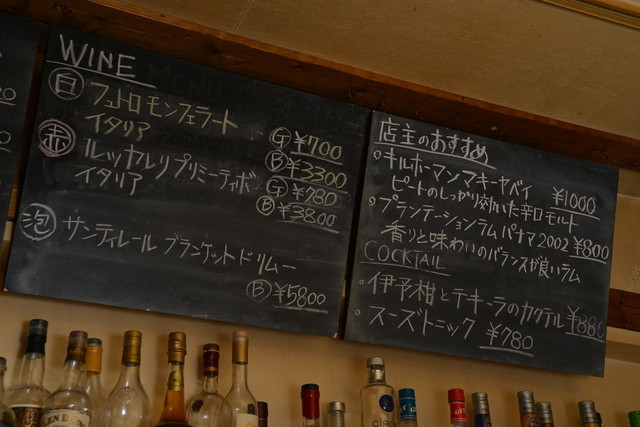 WINE
白 フェトロ モンフェラート
イタリア
G ¥700
B ¥3300
赤 ルッカレリプリミーティボ
イタリア
G ¥780
B ¥3800
泡 サンティレール ブランケット ドリムー
B ¥5800
店主のおすすめ
・キルホーマン マキヤーベイ ¥1000
ピートのしっかり効いた辛口モルト
・プランテーションラム パナマ 2002 ¥800
香りと味わいのバランスが良いラム
COCKTAIL
・伊予柑とテキーラのカクテル ¥880
・スーズトニック ¥780